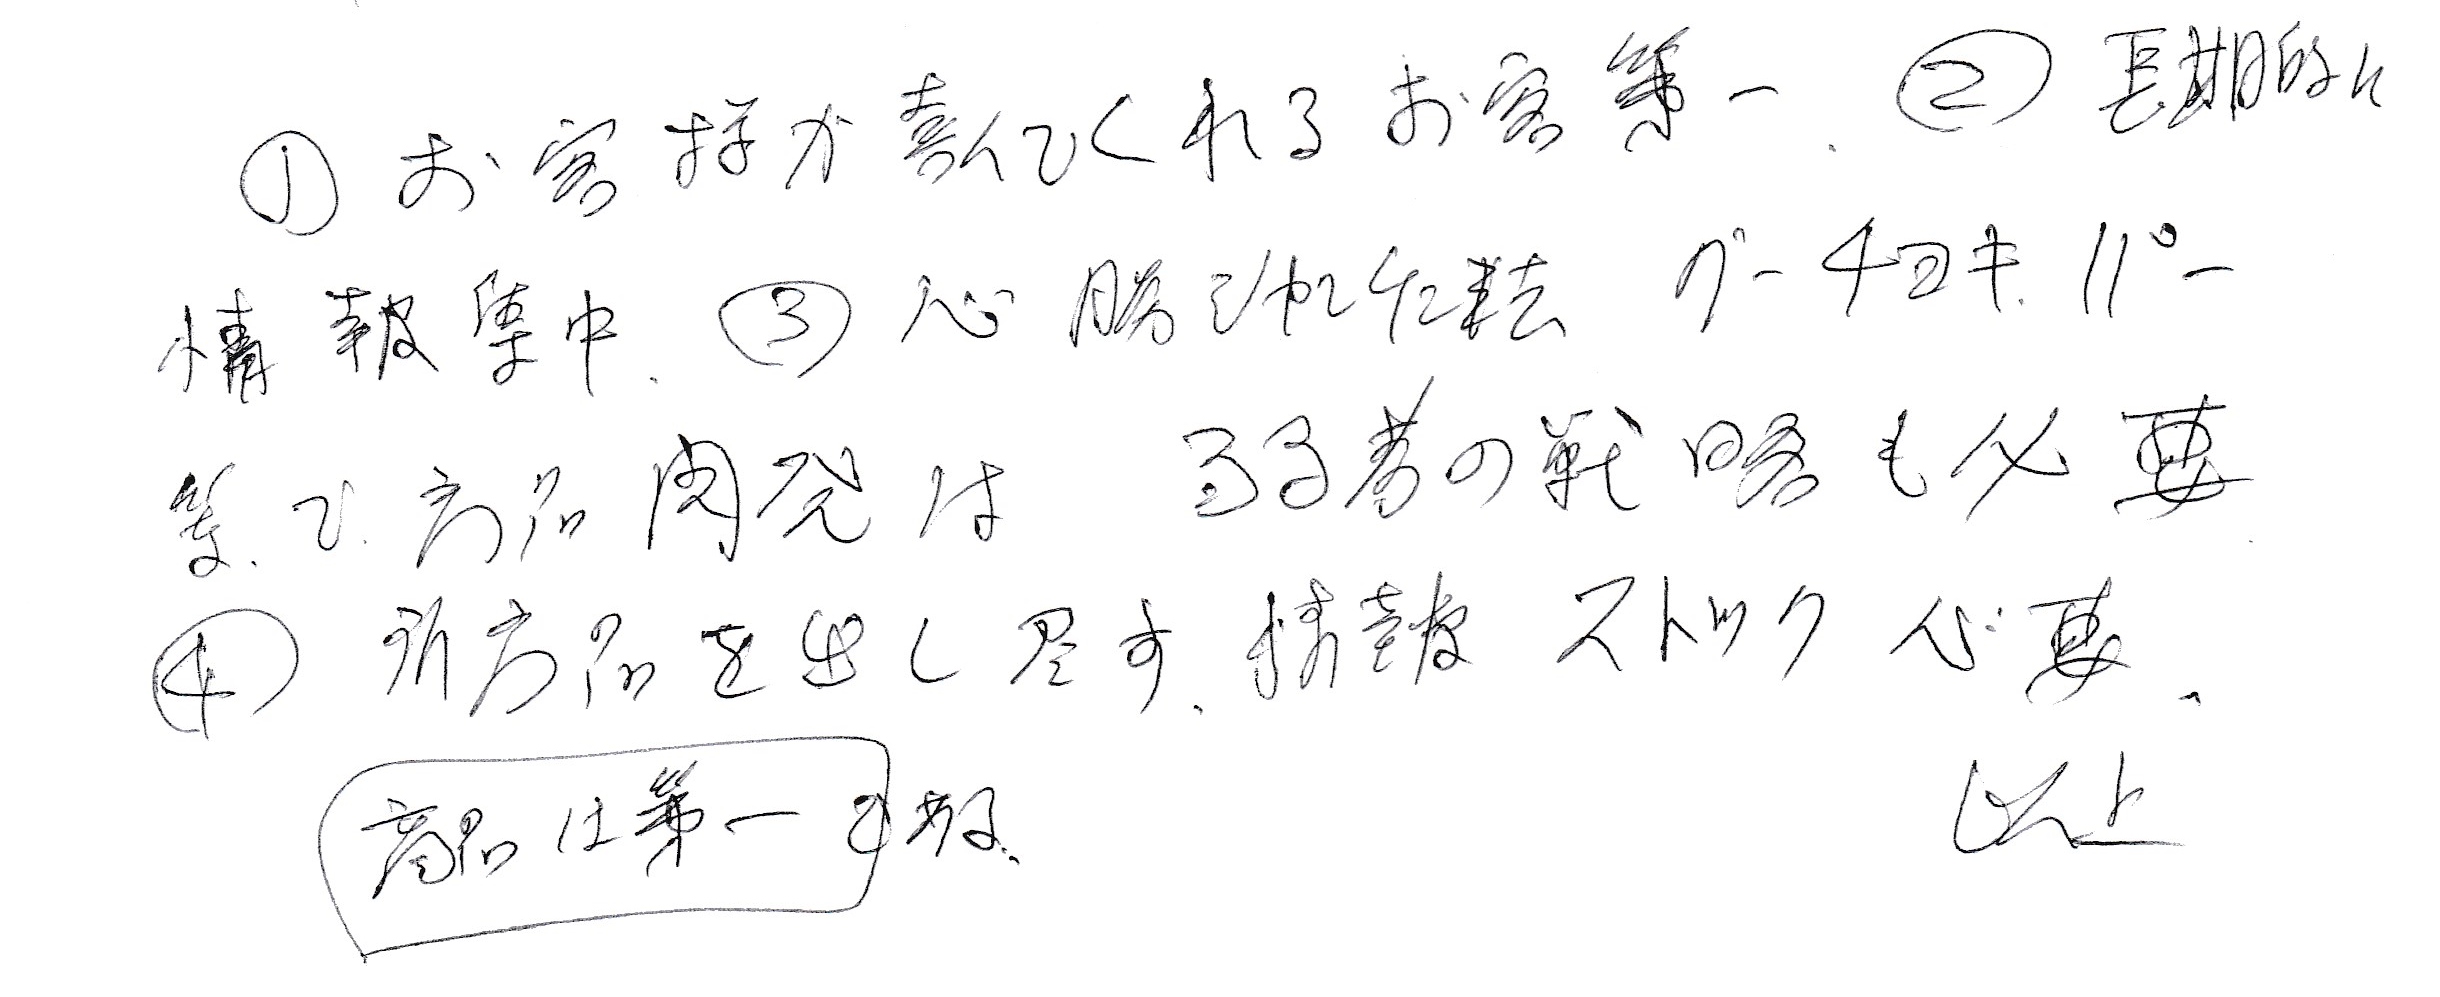 ① お客様が喜んでくれるお客第一. ② 長期的に
情報集中. ③ 必勝じゃんけん法 グーチョキ. パー
等. で. 商品開発は 弱者の戦略も必要.
④ 新商品を出し尽す. 情報 ストック 必要.
商品は第一である.
以上